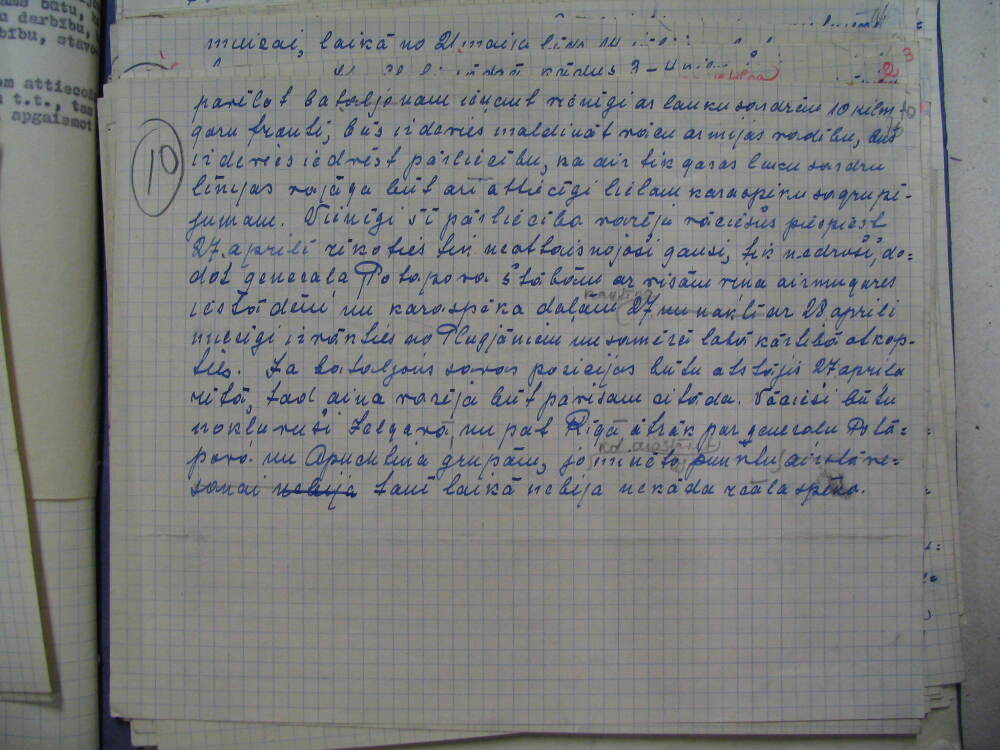 darbību,
bību, stavo-
attiecoš
t.t., tas
apgaismot
muižai, laikā no 21 maija līdz
3
2
pavēlot bataljonam ieņemt vienīgi ar lauku sardzēm 10 kilm.
garu fronti, būs izdevies maldināt vācu armijas vadību, būs
izdevies iedvēst pārliecību, ka aiz tik garas lauku sardzu
līnijas vajaga būt arī attiecīgi lielam karaspēku sagrupē-
jumam. Vienīgi šī pārliecība varēja vāciešus piespiest
27 aprilī rīkoties tik neattaisnojoši gausi, tik nedroši, do=
dot ģenerāļa Potapova štābam ar visām viņa aizmugures
iestādēm un karaspēka daļām 27 un naktī ar 28 aprili
mierīgi izvākties no Plugjāniem un samērā labā kārtībā atkāp-
ties. Ja bataljons savas pozicijas būtu atstājis 27 aprīļa
rītā, tad aina varēja būt pavisam citāda. Vācieši būtu
nokļuvuši Jelgavā, un pat Rīgā ātrāk par ģenerāļu Potā=
pova un Apuchtina grupām, jo minēto punktu aizstāvē=
šanai nebija tanī laikā nebija nekāda reāla spēka.
10